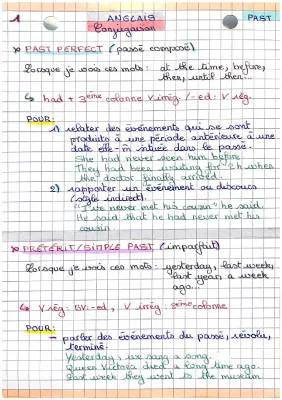 1 ANGLAIS PAST
Conjugaison
PAST PERFECT (passé composé)
Lorsque je vois ces mots: at the time, before,
then, until then...
↳ had + 3eme colonne V irrég / -ed: V rég.
POUR:
1) relater des événements qui se sont
produits à une période antérieure à une
date elle-m̂ située dans le passé.
She had never seen him before.
They had been waiting for 2h when
the doctor finally arrived.
2) rapporter un événement ou discours
(style indirect).
"I've never met his cousin" he said.
He said that he had never met his
cousin
PRÉTÉRIT/SIMPLE PAST (imparfait)
Lorsque je vois ces mots: yesterday, last week,
last year, a week
ago...
↳ V rég: BV-ed, V irrég 2eme colonne
POUR:
- parler des événements du passé, révolu,
terminé.
Yesterday, we sang a song.
Queen Victoria died a long time ago.
Last week they went to the museum